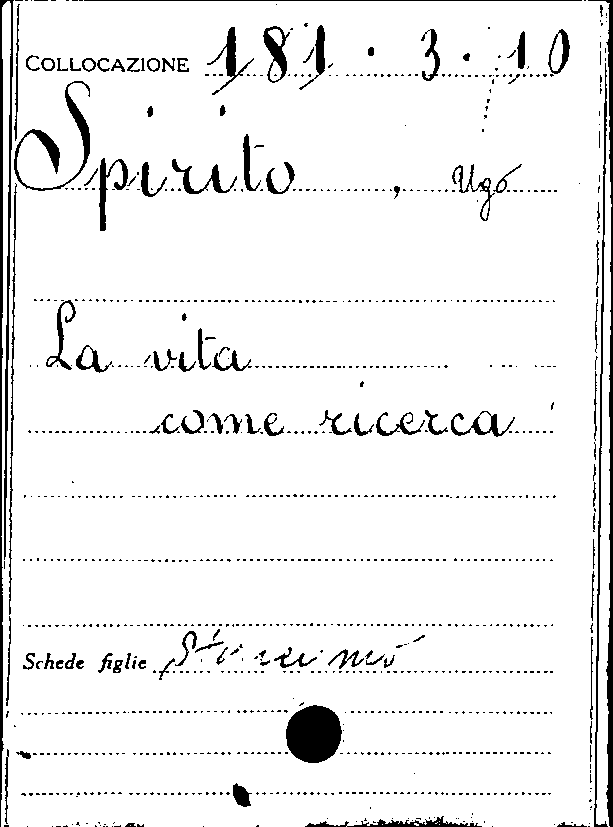 COLLOCAZIONE 181 · 3 · 10
Spirito, Ugo
La vita
come ricerca
Schede figlie